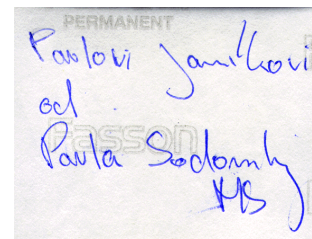 PERMANENT
Pavlovi Janíkovi
od
Fasson
Pavla Sodomky
MS